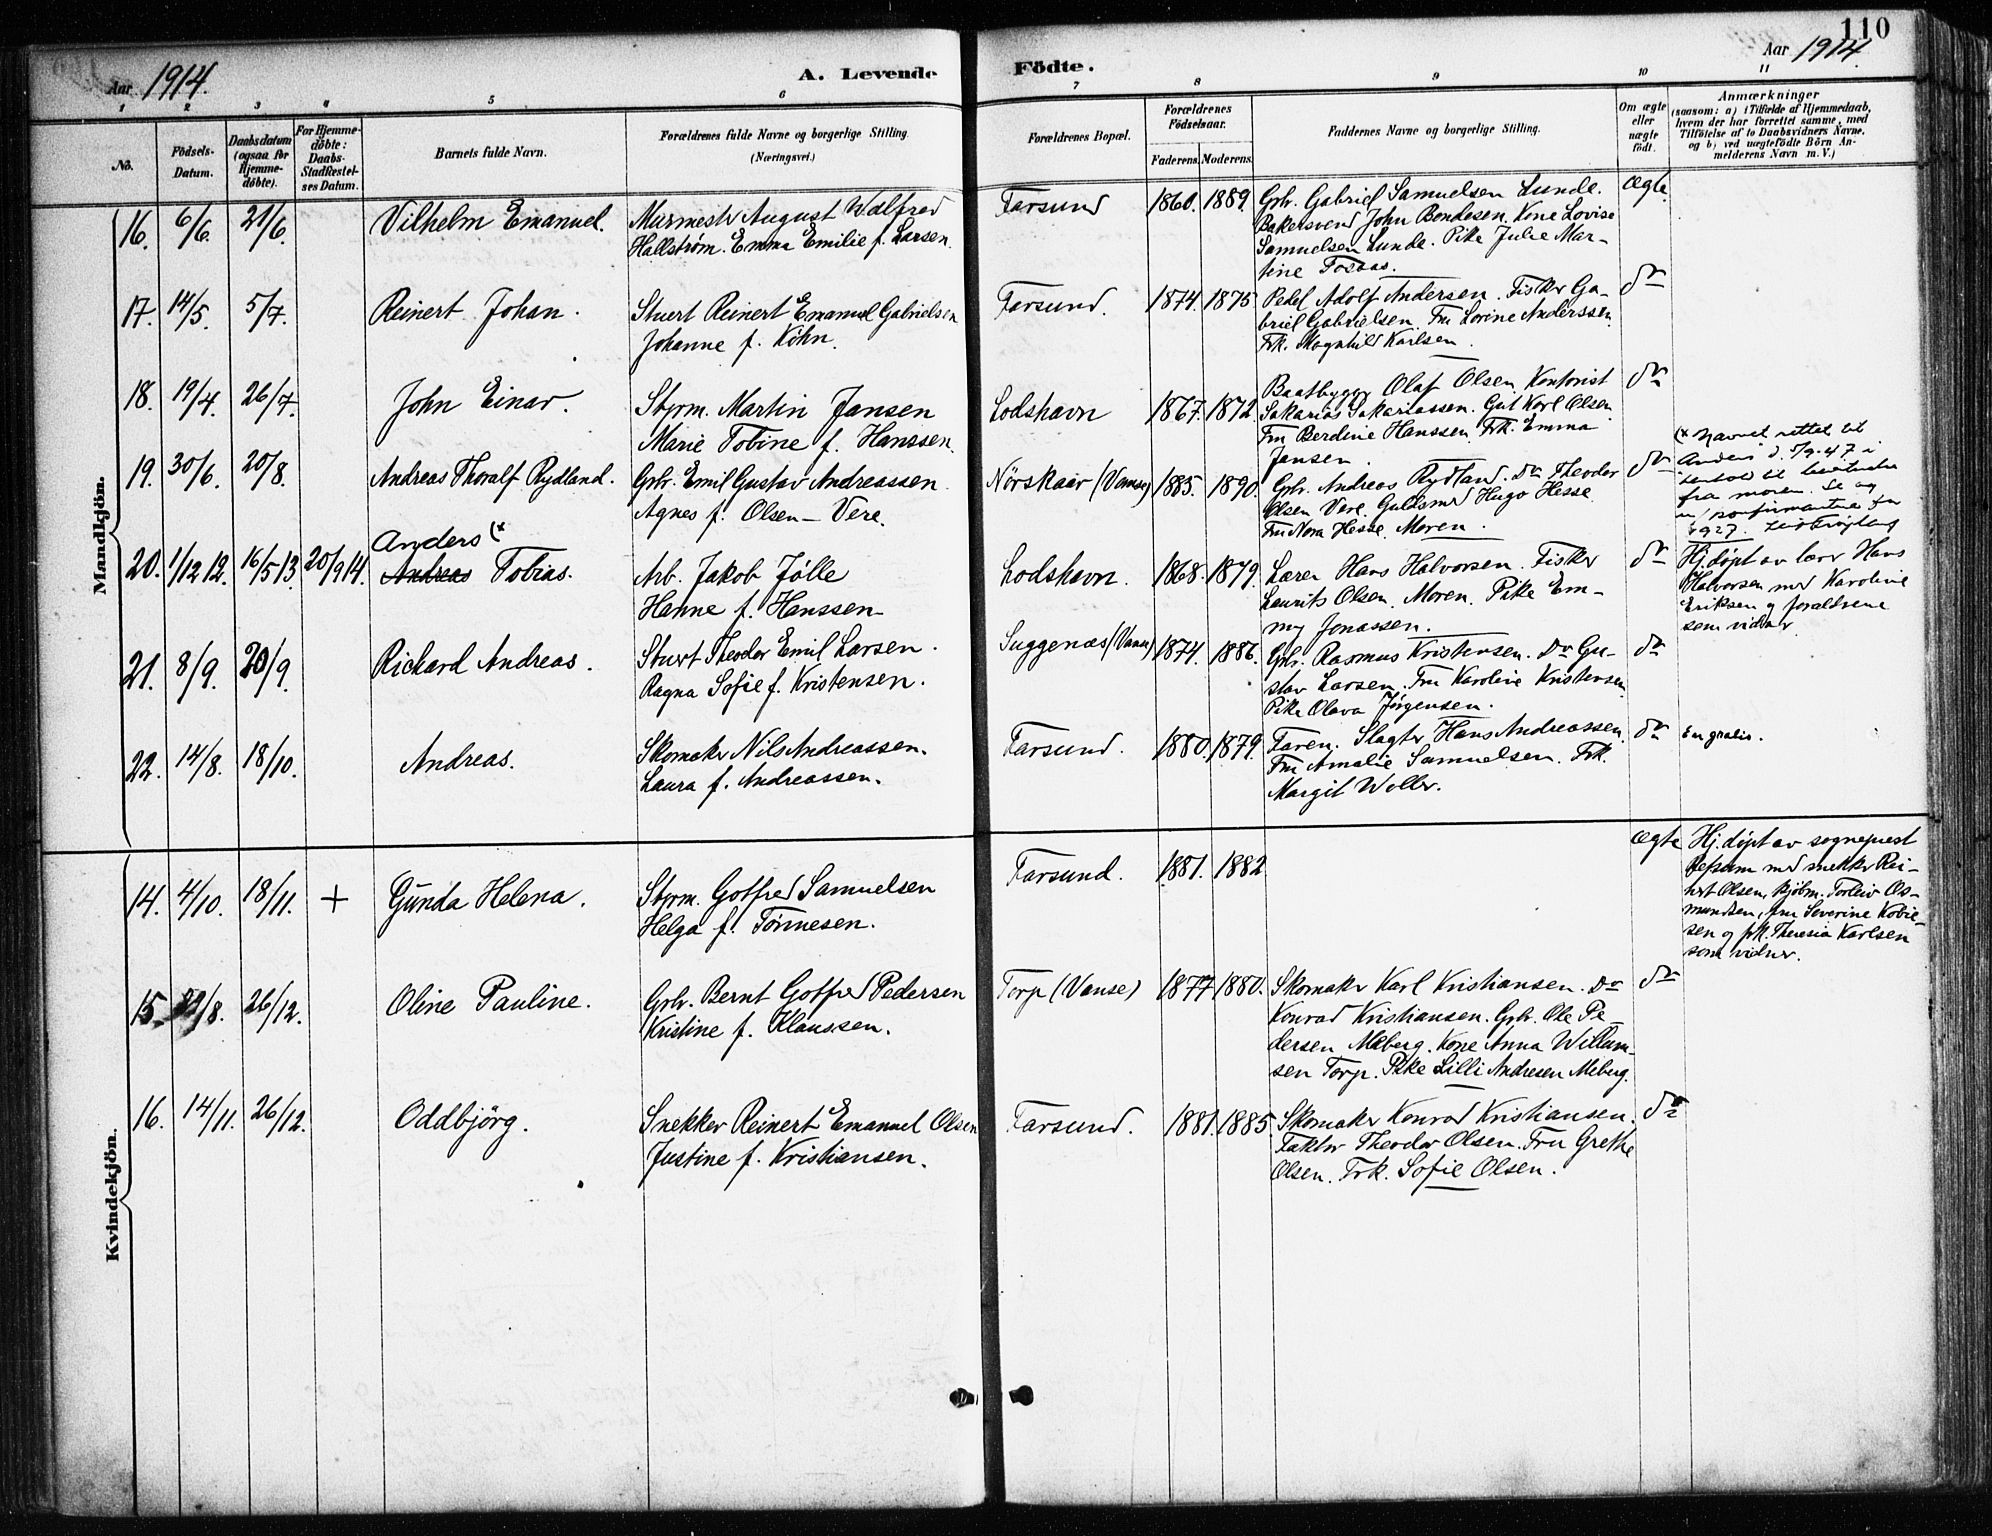 110
Aar 1914.
A. Levende
Födte.
Aar 1914.
1 2 3 4 5 6 7 8 9 10 11
No.
Födsels-
Datum.
Daabsdatum
(ogsaa for
Hjemme-
döbte).
For Hjemme-
döbte:
Daabs-
Stadfæstel-
ses Datum.
Barnets fulde Navn.
Forældrenes fulde Navne og borgerlige Stilling.
(Næringsvei.)
Forældrenes Bopæl.
Forældrenes
Födselsaar.
Faderens. Moderens.
Faddernes Navne og borgerlige Stilling.
Om ægte
eller
uægte
födt.
Anmærkninger
(saasom: a) i Tilfælde af Hjemmedaab,
hvem der har forrettet samme, med
Tilföielse af to Daabsvidners Navne,
og b) ved uægtefödte Börn An-
melderens Navn m. V.)
Mandkjön.
16. 6/6. 21/6. Vilhelm Emanuel.
Murmestr August Walfred
Hallstrøm. Emma Emilie f. Larsen.
Farsund 1860. 1889.
Grb. Gabriel Samuelsen Lunde.
Bakersvend John Bendesen. Kone Lovise
Samuelsen Lunde. Pike Julie Mar-
tine
ægte.
17. 14/5. 5/7. Reinert Johan.
Stuert Reinert Emanuel Gabrielsen
Johanne f. Köhn.
Farsund. 1874. 1875
Pedel Adolf Andersen. Fisker Ga-
briel Gabrielsen. Fru Lovine Anderssen.
Frk. Magnhild Karlsen.
do
18. 19/4. 26/7. John Einar.
Styrm. Martin Jansen
Marie Tobine f. Hanssen.
Lodshavn 1867. 1872.
Baatbygger Olaf Olsen. Kontorist
Sakarias Sakariassen. Gut Karl Olsen.
Fru Berdine Hanssen. Frk. Emma
Jansen.
do
19. 30/6. 20/8. Andreas Thoralf Rydland.
Grb. Emil Gustav Andreassen.
Agnes f. Olsen-Vere.
Nörskaar (Vanse) 1885. 1890.
Grb. Andreas Rydland. Do Theodor
Olsen Vere. Guldsmed Hugo Hesse.
Fru Nora Hesse. Moren.
do
(* Navnet rettet til
Anders d. 5/9-47 i
henhold til
fra moren. Se og
konfirmantene for
1927.
20. 1/12 12. 16/5 13. 20/9 14. Anders (*
Andreas Tobias.
Arb. Jakob Jölle
Hanne f. Hanssen
Lodshavn. 1868. 1879.
Lærer Hans Halvorsen. Fisker
Laurits Olsen. Moren. Pike Em-
my Jonassen.
do
Hj.döpt av lærr Hans
Halvorsen med Karoline
Eriksen og forældrene
som vidner
21. 8/9. 20/9. Richard Andreas.
Stuert Theodor Emil Larsen.
Ragna Sofie f. Kristensen.
Suggenæs (Vanse) 1874. 1886.
Grb. Rasmus Kristensen. Do Gu-
stav Larsen. Fru Karoline Kristensen.
Pike Olava Jörgensen.
do
22. 14/8. 18/10. Andreas.
Skomaker Nils Andreassen.
Laura f. Andreassen.
Farsund. 1880. 1879.
Faren. Slagter Hans Andreassen.
Fru Amalie Samuelsen. Frk.
Margit Weller.
do
Kvindekjön.
14. 4/10. 18/11. + Gunda Helena.
Styrm. Gotfred Samuelsen
Helga f. Tönnesen.
Farsund. 1881. 1882.
ægte
Hj.döpt av sogneprest
med snekkr Rei-
nert Olsen, Torleiv Os-
mundsen, fru Severine
sen og frk. Theresia Karlsen
som vidner.
15. /8. 26/12. Oline Pauline.
Grb. Bernt Gotfred Pedersen
Kristine f. Klaussen.
Torp (Vanse) 1877. 1880.
Skomaker Karl Kristiansen. Do
Konrad Kristiansen. Grb. Ole Pe-
dersen Meberg. Kone Anna Willum-
sen Torp. Pike Lilli Andresen Meberg.
do
16. 14/11. 26/12. Oddbjörg.
Snekker Reinert Emanuel Olsen
Justine f. Kristiansen.
Farsund. 1881. 1885.
Skomaker Konrad Kristiansen.
Faktor Theodor Olsen. Fru Grethe
Olsen. Frk. Sofie Olsen.
do